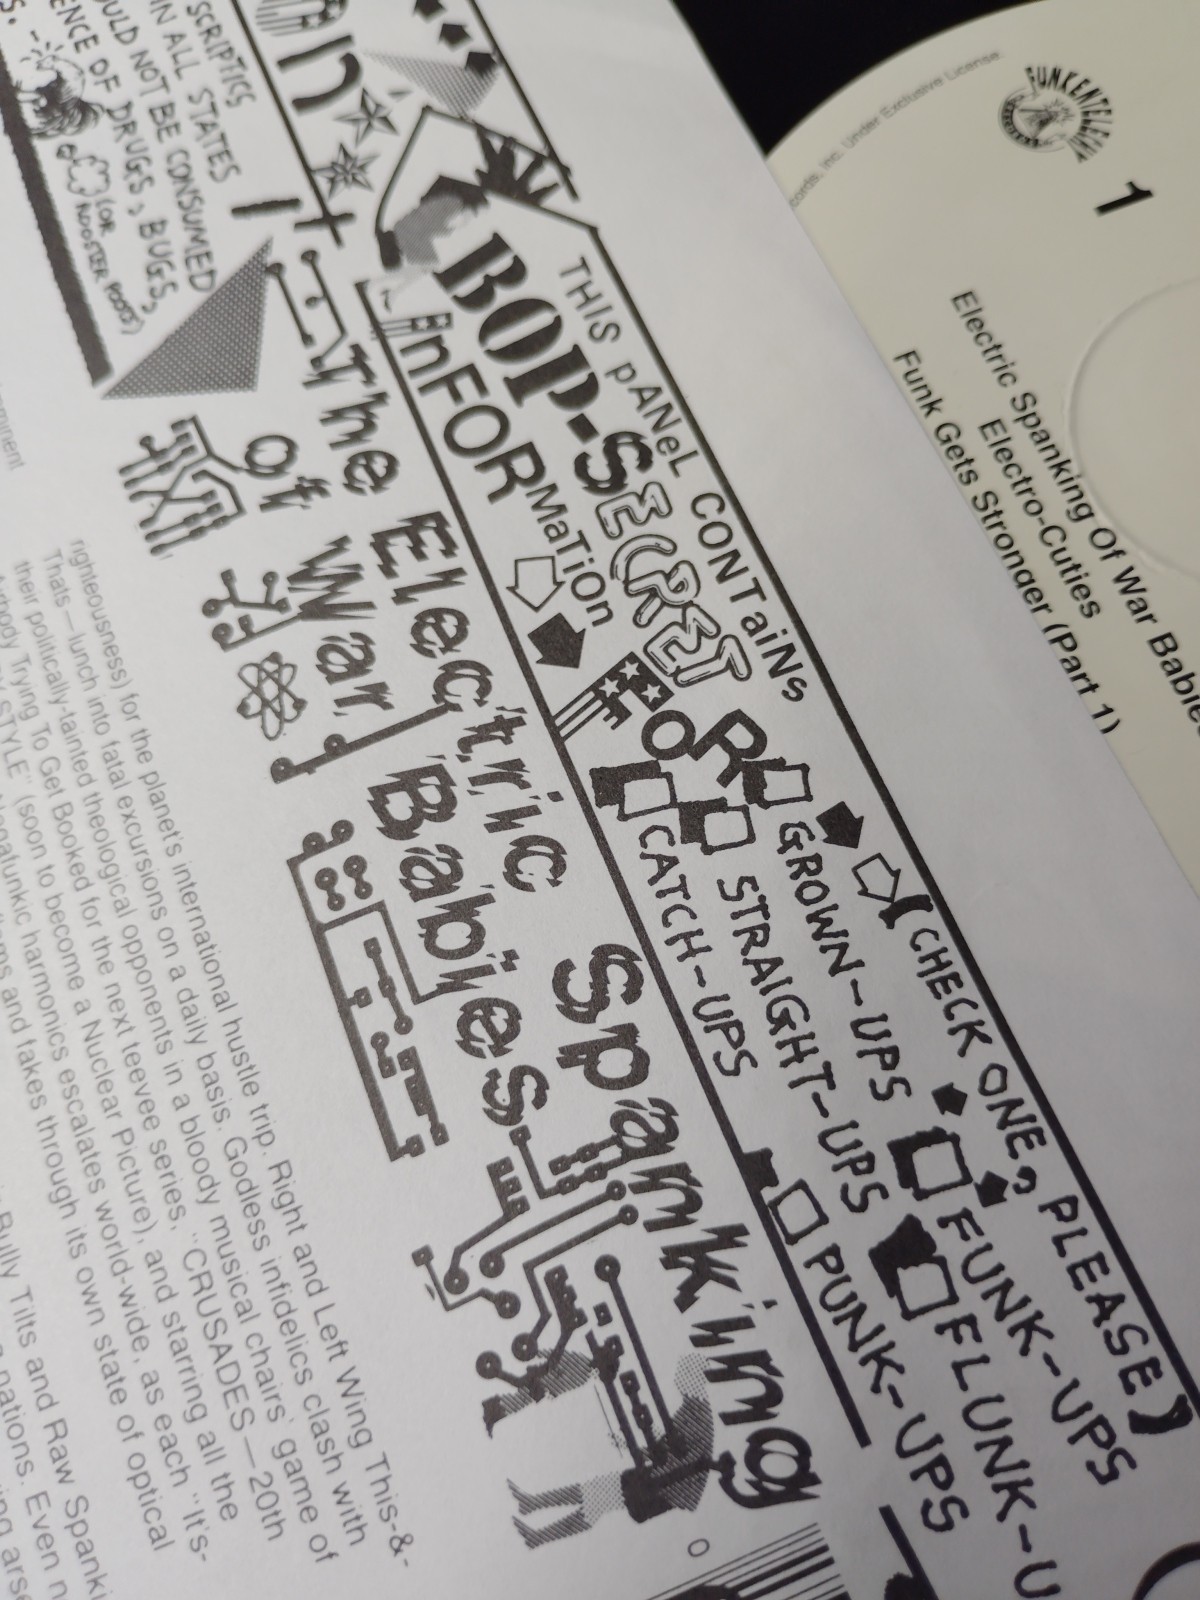 SCRIPTICS
IN ALL STATES
NOT BE CONSUMED
OF DRUGS, BUGS,
(OR
ROOSTER POOTS)
THIS pANeL CONTaiNs
BOP-SECRET
inFORMaTiOn
FOR
(CHECK ONE, PLEASE)
GROWN-UPS
FUNK-UPS
STRAIGHT-UPS
CATCH-UPS
PUNK-UPS
The Electric Spanking
of War Babies
0
righteousness) for the planet's international hustle trip. Right and Left Wing This-&-
Thats — lunch into fatal excursions on a daily basis. Godless infidelics clash with
their politically-tainted theological opponents in a bloody musical chairs' game of
Trying To Get Booked for the next teevee series, "CRUSADES — 20th
STYLE" (soon to become a Nuclear Picture), and starring all the
harmonics escalates world-wide, as each "It's-
and takes through its own state of optical
Bully Tilts and Raw
nations. Even
Inc. Under Exclusive License.
FUNKENTELECHY
1
Electric Spanking Of War
Electro-Cuties
Funk Gets Stronger (Part 1)